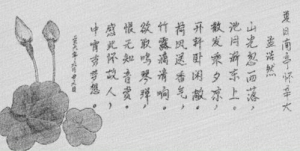 夏日南亭怀辛大
孟浩然
山光忽西落，
池月渐东上。
散发乘夕凉，
开轩卧闲敞。
荷风送香气，
竹露滴清响。
欲取鸣琴弹，
恨无知音赏。
感此怀故人，
中宵劳梦想。